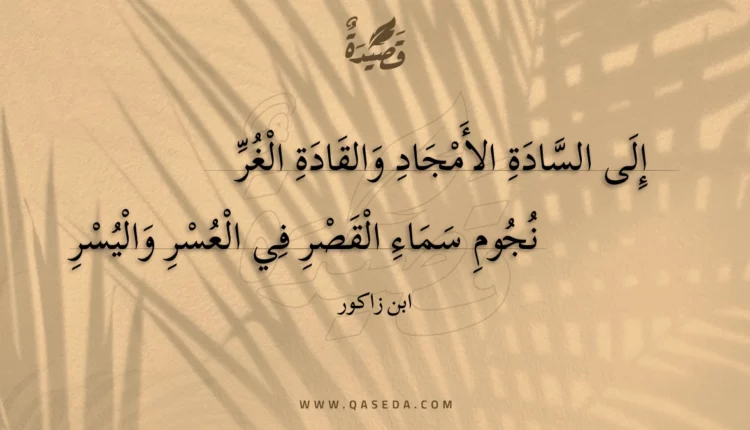 قَصِيْدَةٌ
إِلَى السَّادَةِ الأَمْجَادِ وَالقَادَةِ الْغُرِّ
نُجُومِ سَمَاءِ الْقَصْرِ فِي الْعُسْرِ وَالْيُسْرِ
ابن زاكور
WWW.QASEDA.COM